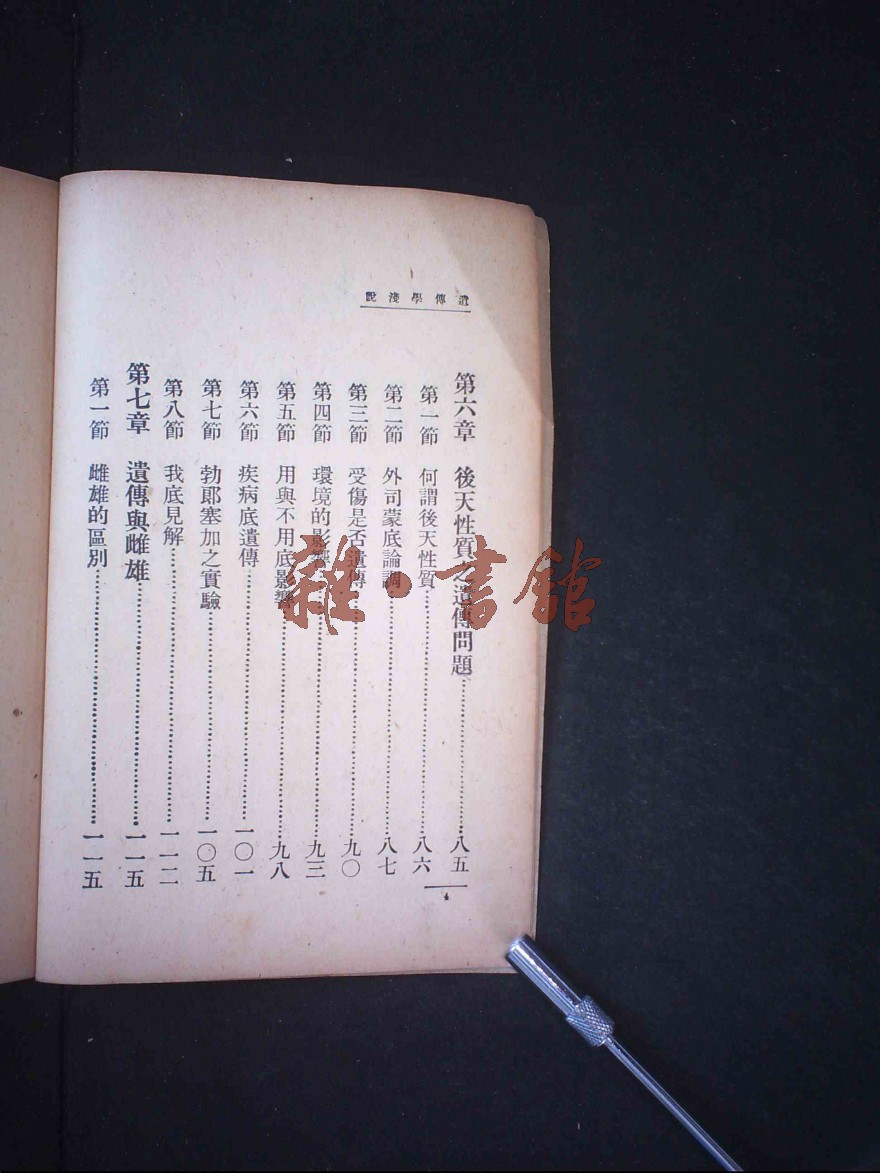 遺傳學淺說
第六章 後天性質之遺傳問題……八五
第一節 何謂後天性質……八六
第二節 外司蒙底論調……八七
第三節 受傷是否遺傳……九〇
第四節 環境的影響……九三
第五節 用與不用底影響……九八
第六節 疾病底遺傳……一〇一
第七節 勃郎塞加之實驗……一〇五
第八節 我底見解……一一二
第七章 遺傳與雌雄……一一五
第一節 雌雄的區別……一一五
雜·書館